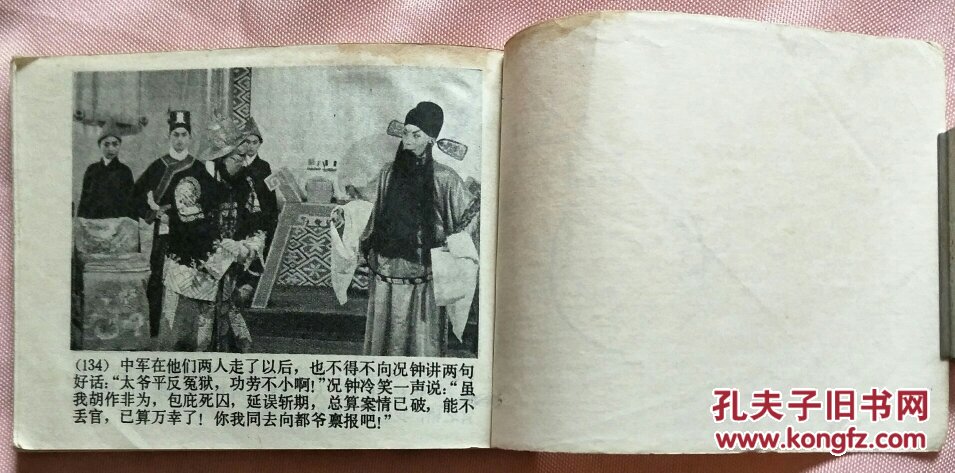 (134) 中军在他们两人走了以后，也不得不向况钟讲两句
好话：“太爷平反冤狱，功劳不小啊！”况钟冷笑一声说：“虽
我胡作非为，包庇死囚，延误斩期，总算案情已破，能不
丢官，已算万幸了！你我同去向都爷禀报吧！”
孔夫子旧书网
www.kongfz.com